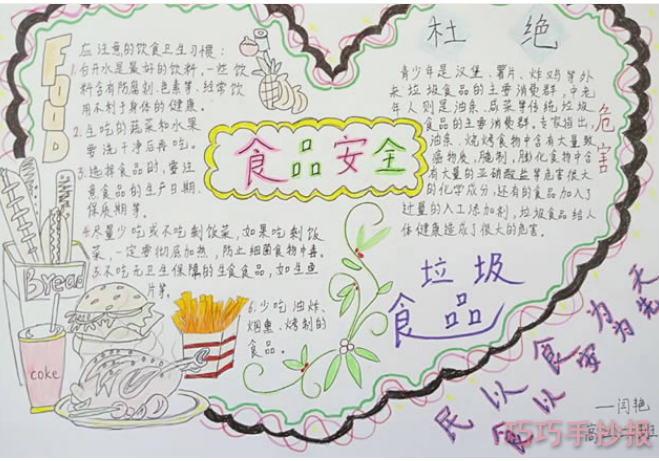 FOOD
应注意的饮食卫生习惯：
1.白开水是最好的饮料，一些饮
料含有防腐剂、色素等，经常饮
用不利于身体的健康。
2.生吃的蔬菜和水果
要洗干净后再吃。
3.选择食品时，要注
意食品的生产日期、
保质期等。
4.尽量少吃或不吃剩饭菜，如果吃剩饭
菜，一定要彻底加热，防止细菌食物中毒。
5.不吃无卫生保障的生食食品，如生鱼
片等。
6.少吃油炸、
烟熏、烤制的
食品。
Bread
coke
食品安全
杜绝
青少年是汉堡、薯片、炸鸡等外
来垃圾食品的主要消费群，中老
年人则是油条、咸菜等传统垃圾
食品的主要消费群。专家指出，
油条、烧烤食物中含有大量致
癌物质，腌制，膨化食物中含
有大量的亚硝酸盐等危害很大
的化学成分，还有的食品加入了
过量的人工添加剂，垃圾食品给人
体健康造成了很大的危害。
危害
垃圾
食品
民以食为天
以安为先
一闫艳
巧巧手抄报